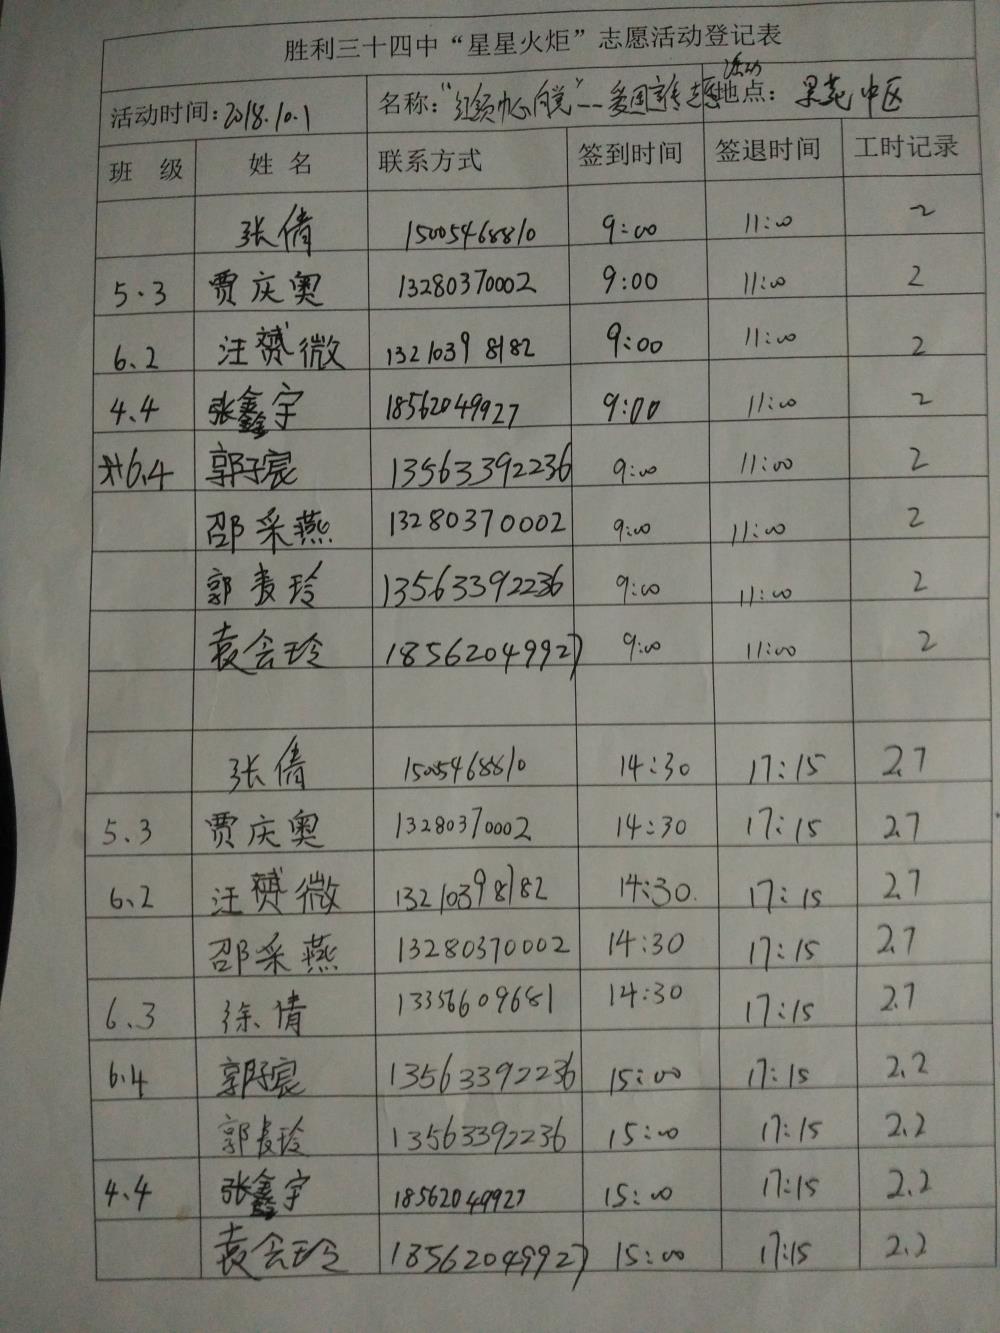 胜利三十四中“星星火炬”志愿活动登记表
活动时间:2018.10.1 名称:“红领巾心向党”--爱国宣传志愿活动 地点: 果苑中区
班 级 姓 名 联系方式 签到时间 签退时间 工时记录
张倩 15005468810 9:00 11:00 2
5.3 贾庆奥 13280370002 9:00 11:00 2
6.2 汪赟微 13210398182 9:00 11:00 2
4.4 张鑫宇 18562049927 9:00 11:00 2
6.4 郭子宸 13563392236 9:00 11:00 2
邵采燕 13280370002 9:00 11:00 2
郭长玲 13563392236 9:00 11:00 2
袁会玲 18562049927 9:00 11:00 2
张倩 15005468810 14:30 17:15 2.7
5.3 贾庆奥 13280370002 14:30 17:15 2.7
6.2 汪赟微 13210398182 14:30 17:15 2.7
邵采燕 13280370002 14:30 17:15 2.7
6.3 徐倩 13356609681 14:30 17:15 2.7
6.4 郭子宸 13563392236 15:00 17:15 2.2
郭长玲 13563392236 15:00 17:15 2.2
4.4 张鑫宇 18562049927 15:00 17:15 2.2
袁会玲 18562049927 15:00 17:15 2.2